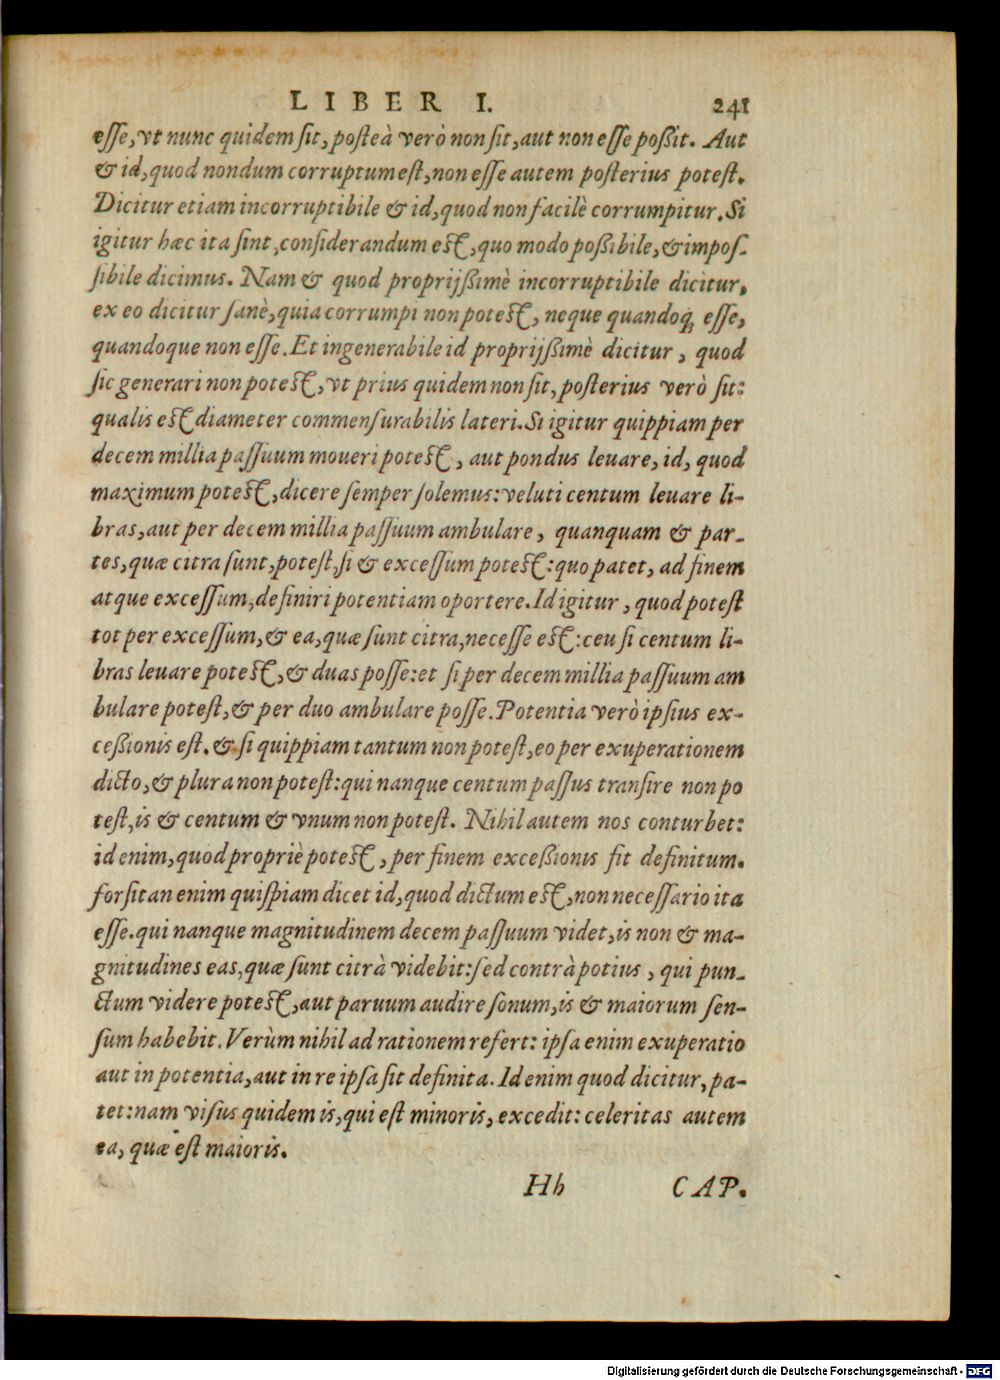 LIBER I. 241
esse, vt nunc quidem sit, posteà verò non sit, aut non esse poßit. Aut
& id, quod nondum corruptum est, non esse autem posterius potest.
Dicitur etiam incorruptibile & id, quod non facilè corrumpitur. Si
igitur hæc ita sint, considerandum est, quo modo poßibile, & impos-
sibile dicimus. Nam & quod proprijßimè incorruptibile dicitur,
ex eo dicitur sanè, quia corrumpi non potest, neque quandoq; esse,
quandoque non esse. Et ingenerabile id proprijßimè dicitur, quod
sic generari non potest, vt prius quidem non sit, posterius verò sit:
qualis est diameter commensurabilis lateri. Si igitur quippiam per
decem millia passuum moueri potest, aut pondus leuare, id, quod
maximum potest, dicere semper solemus: veluti centum leuare li-
bras, aut per decem millia passuum ambulare, quanquam & par-
tes, quæ citra sunt, potest, si & excessum potest: quo patet, ad finem
atque excessum, definiri potentiam oportere. Id igitur, quod potest
tot per excessum, & ea, quæ sunt citra, necesse est: ceu si centum li-
bras leuare potest, & duas posse: et si per decem millia passuum am
bulare potest, & per duo ambulare posse. Potentia verò ipsius ex-
ceßionis est. & si quippiam tantum non potest, eo per exuperationem
dicto, & plura non potest: qui nanque centum passus transire non po
test, is & centum & vnum non potest. Nihil autem nos conturbet:
id enim, quod propriè potest, per finem exceßionis fit definitum.
forsitan enim quispiam dicet id, quod dictum est, non necessario ita
esse. qui nanque magnitudinem decem passuum videt, is non & ma-
gnitudines eas, quæ sunt citrà videbit: sed contrà potius, qui pun-
ctum videre potest, aut paruum audire sonum, is & maiorum sen-
sum habebit. Verùm nihil ad rationem refert: ipsa enim exuperatio
aut in potentia, aut in re ipsa sit definita. Id enim quod dicitur, pa-
tet: nam visus quidem is, qui est minoris, excedit: celeritas autem
ea, quæ est maioris.
Hh CAP.
Digitalisierung gefördert durch die Deutsche Forschungsgemeinschaft - DFG